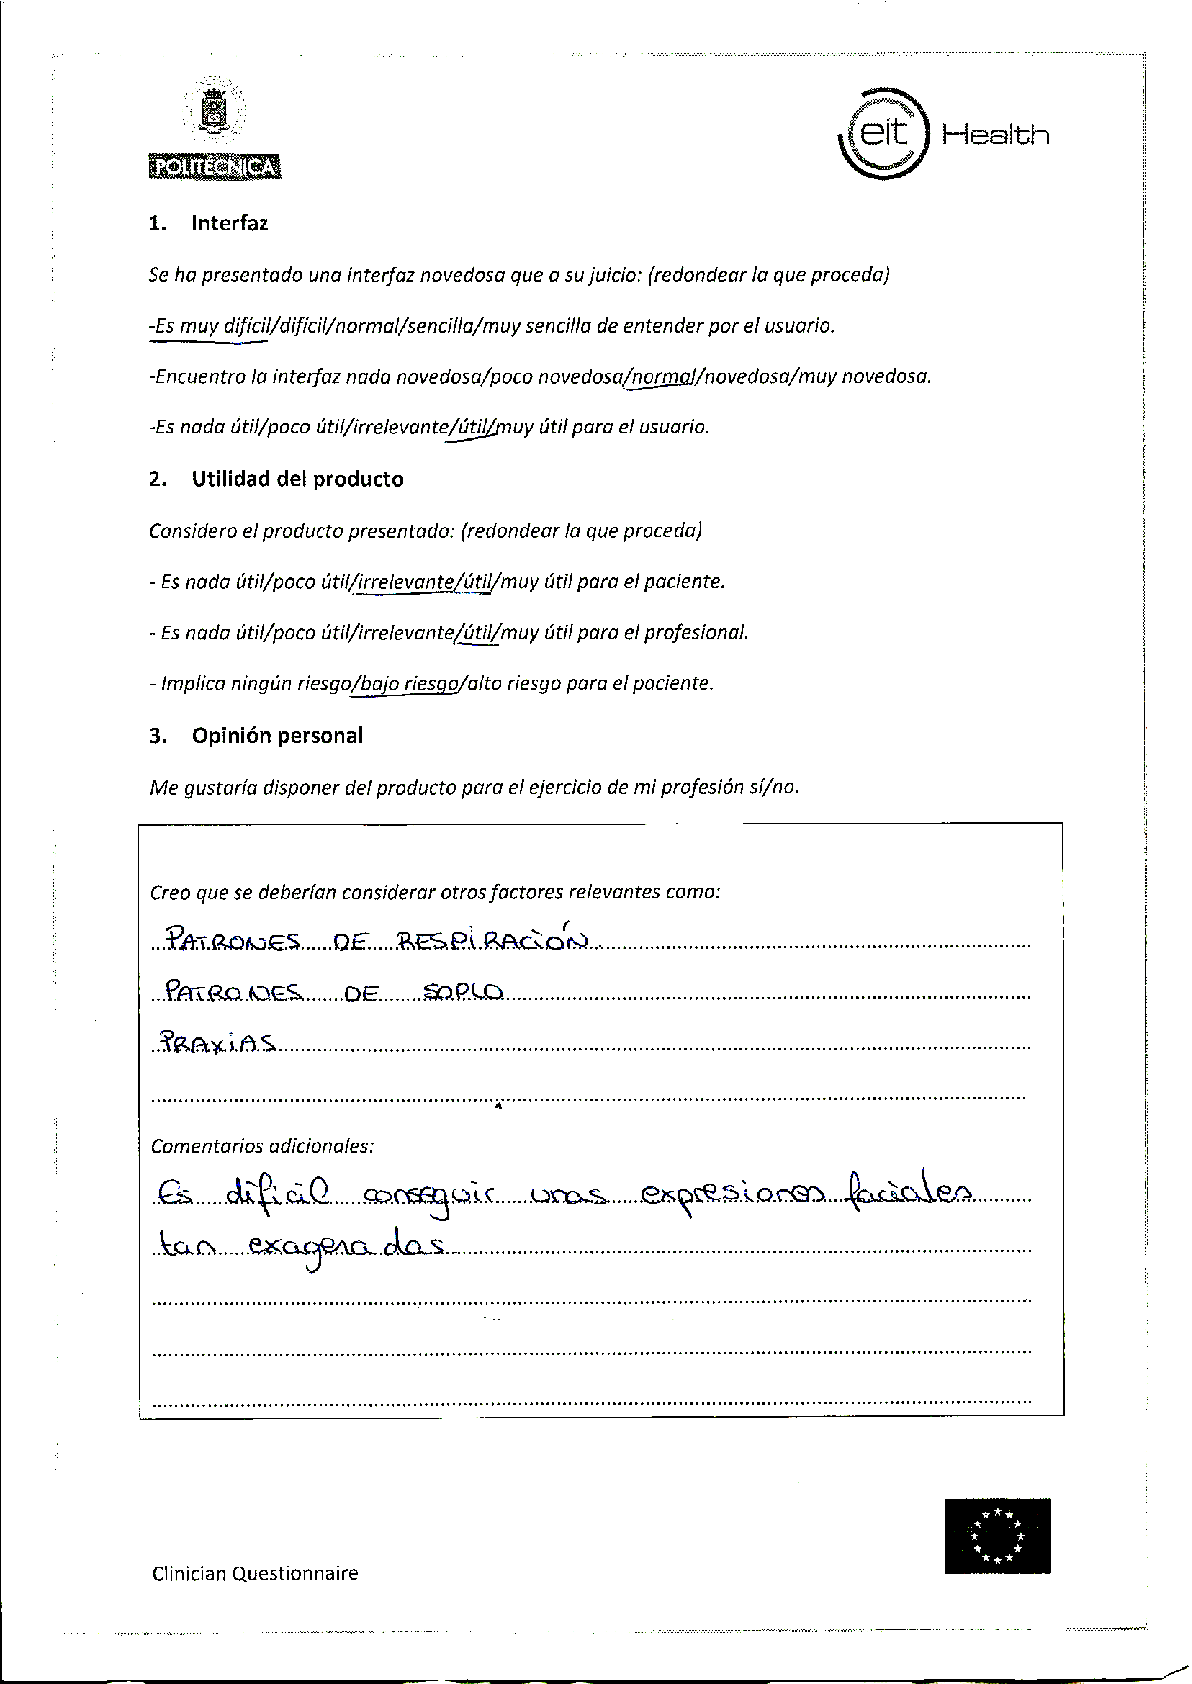 POLITECNICA
eit Health
1. Interfaz
Se ha presentado una interfaz novedosa que a su juicio: (redondear la que proceda)
-Es muy difícil/difícil/normal/sencilla/muy sencilla de entender por el usuario.
-Encuentro la interfaz nada novedosa/poco novedosa/normal/novedosa/muy novedosa.
-Es nada útil/poco útil/irrelevante/útil/muy útil para el usuario.
2. Utilidad del producto
Considero el producto presentado: (redondear la que proceda)
- Es nada útil/poco útil/irrelevante/útil/muy útil para el paciente.
- Es nada útil/poco útil/irrelevante/útil/muy útil para el profesional.
- Implica ningún riesgo/bajo riesgo/alto riesgo para el paciente.
3. Opinión personal
Me gustaría disponer del producto para el ejercicio de mi profesión sí/no.
Creo que se deberían considerar otros factores relevantes como:
PATRONES DE RESPIRACIÓN
PATRONES DE SOPLO
PRAXIAS
Comentarios adicionales:
Es dificil conseguir unas expresiones faciales
tan exageradas
Clinician Questionnaire